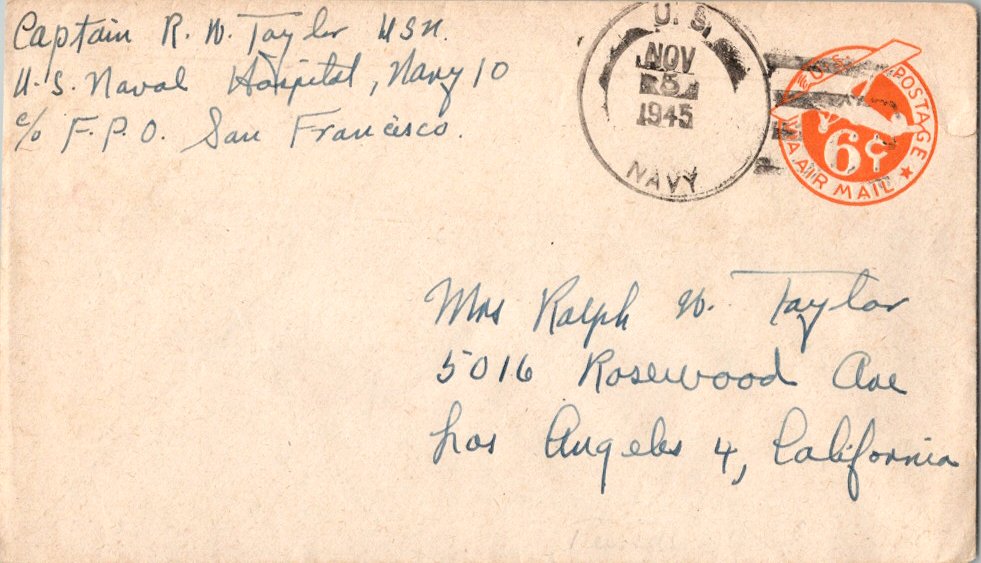 Captain R. W. Taylor USN.
U.S. Naval Hospital, Navy 10
c/o F.P.O. San Francisco.
U. S.
NOV
8
1945
NAVY
U.S. POSTAGE
VIA AIR MAIL
6¢
Mrs Ralph W. Taylor
5016 Rosewood Ave
Los Angeles 4, California